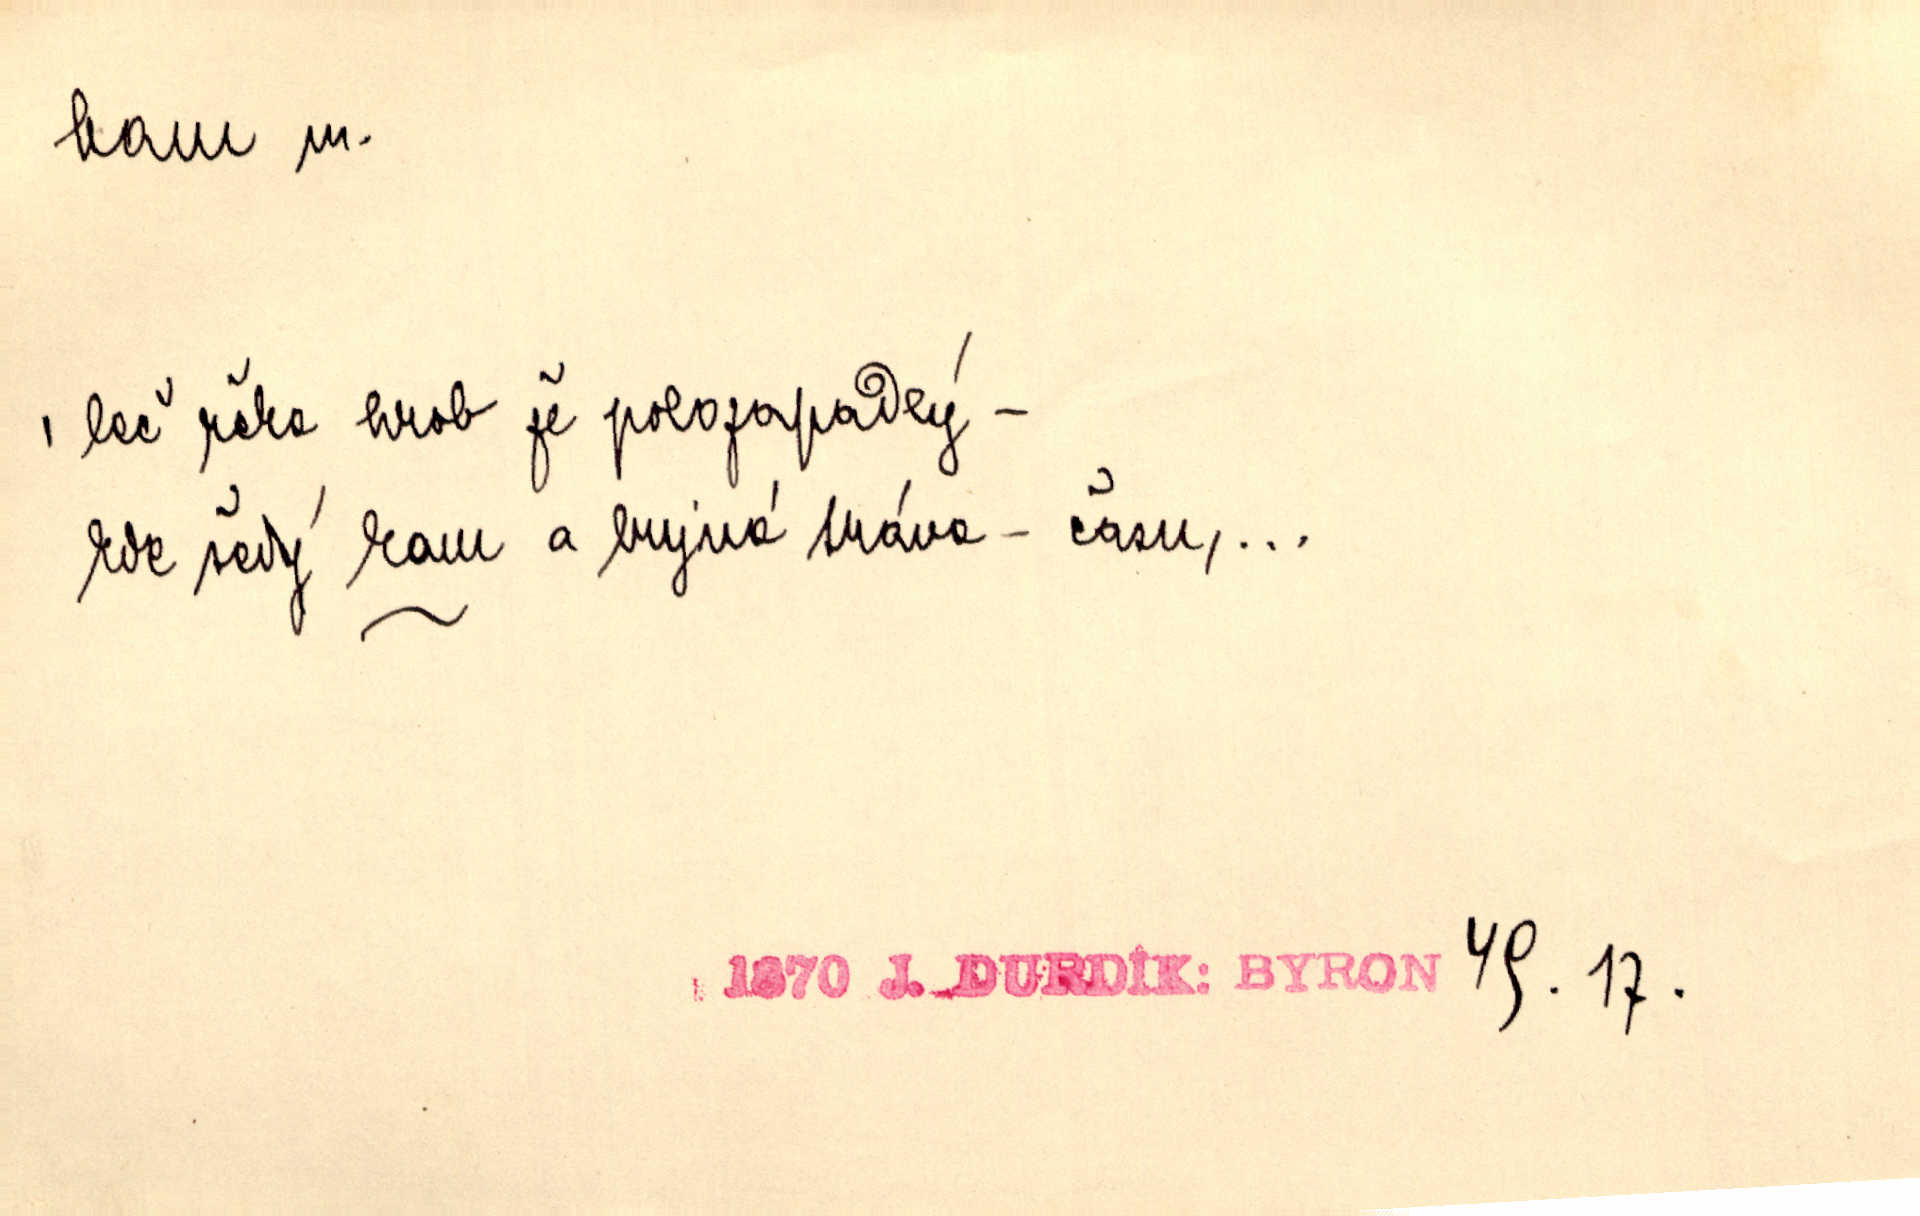 kam m.
, leč rěka hrob jě polozapadlý –
kde šedý kam a bujná tráva – času, ...
1870 J. DURDÍK: BYRON 49. 17.